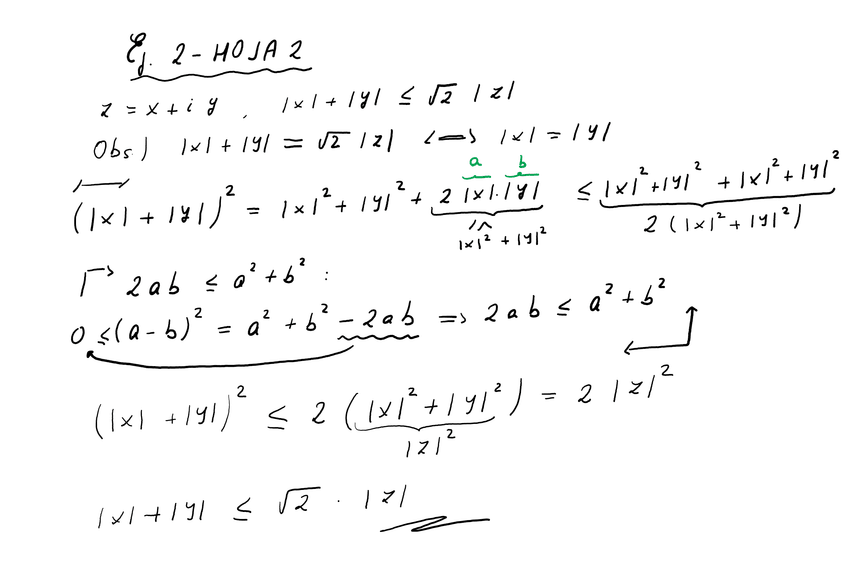 Ej. 2 - HOJA 2
z = x + i y , |x| + |y| ≤ √2 |z|
Obs) |x| + |y| = √2 |z| ⟷ |x| = |y|
a b
(|x| + |y|)² = |x|² + |y|² + 2 |x|·|y| ≤ |x|² + |y|² + |x|² + |y|²
|x|² + |y|² 2 (|x|² + |y|²)
2ab ≤ a² + b² :
0 ≤ (a - b)² = a² + b² - 2ab => 2ab ≤ a² + b²
(|x| + |y|)² ≤ 2 (|x|² + |y|²) = 2 |z|²
|z|²
|x| + |y| ≤ √2 · |z|